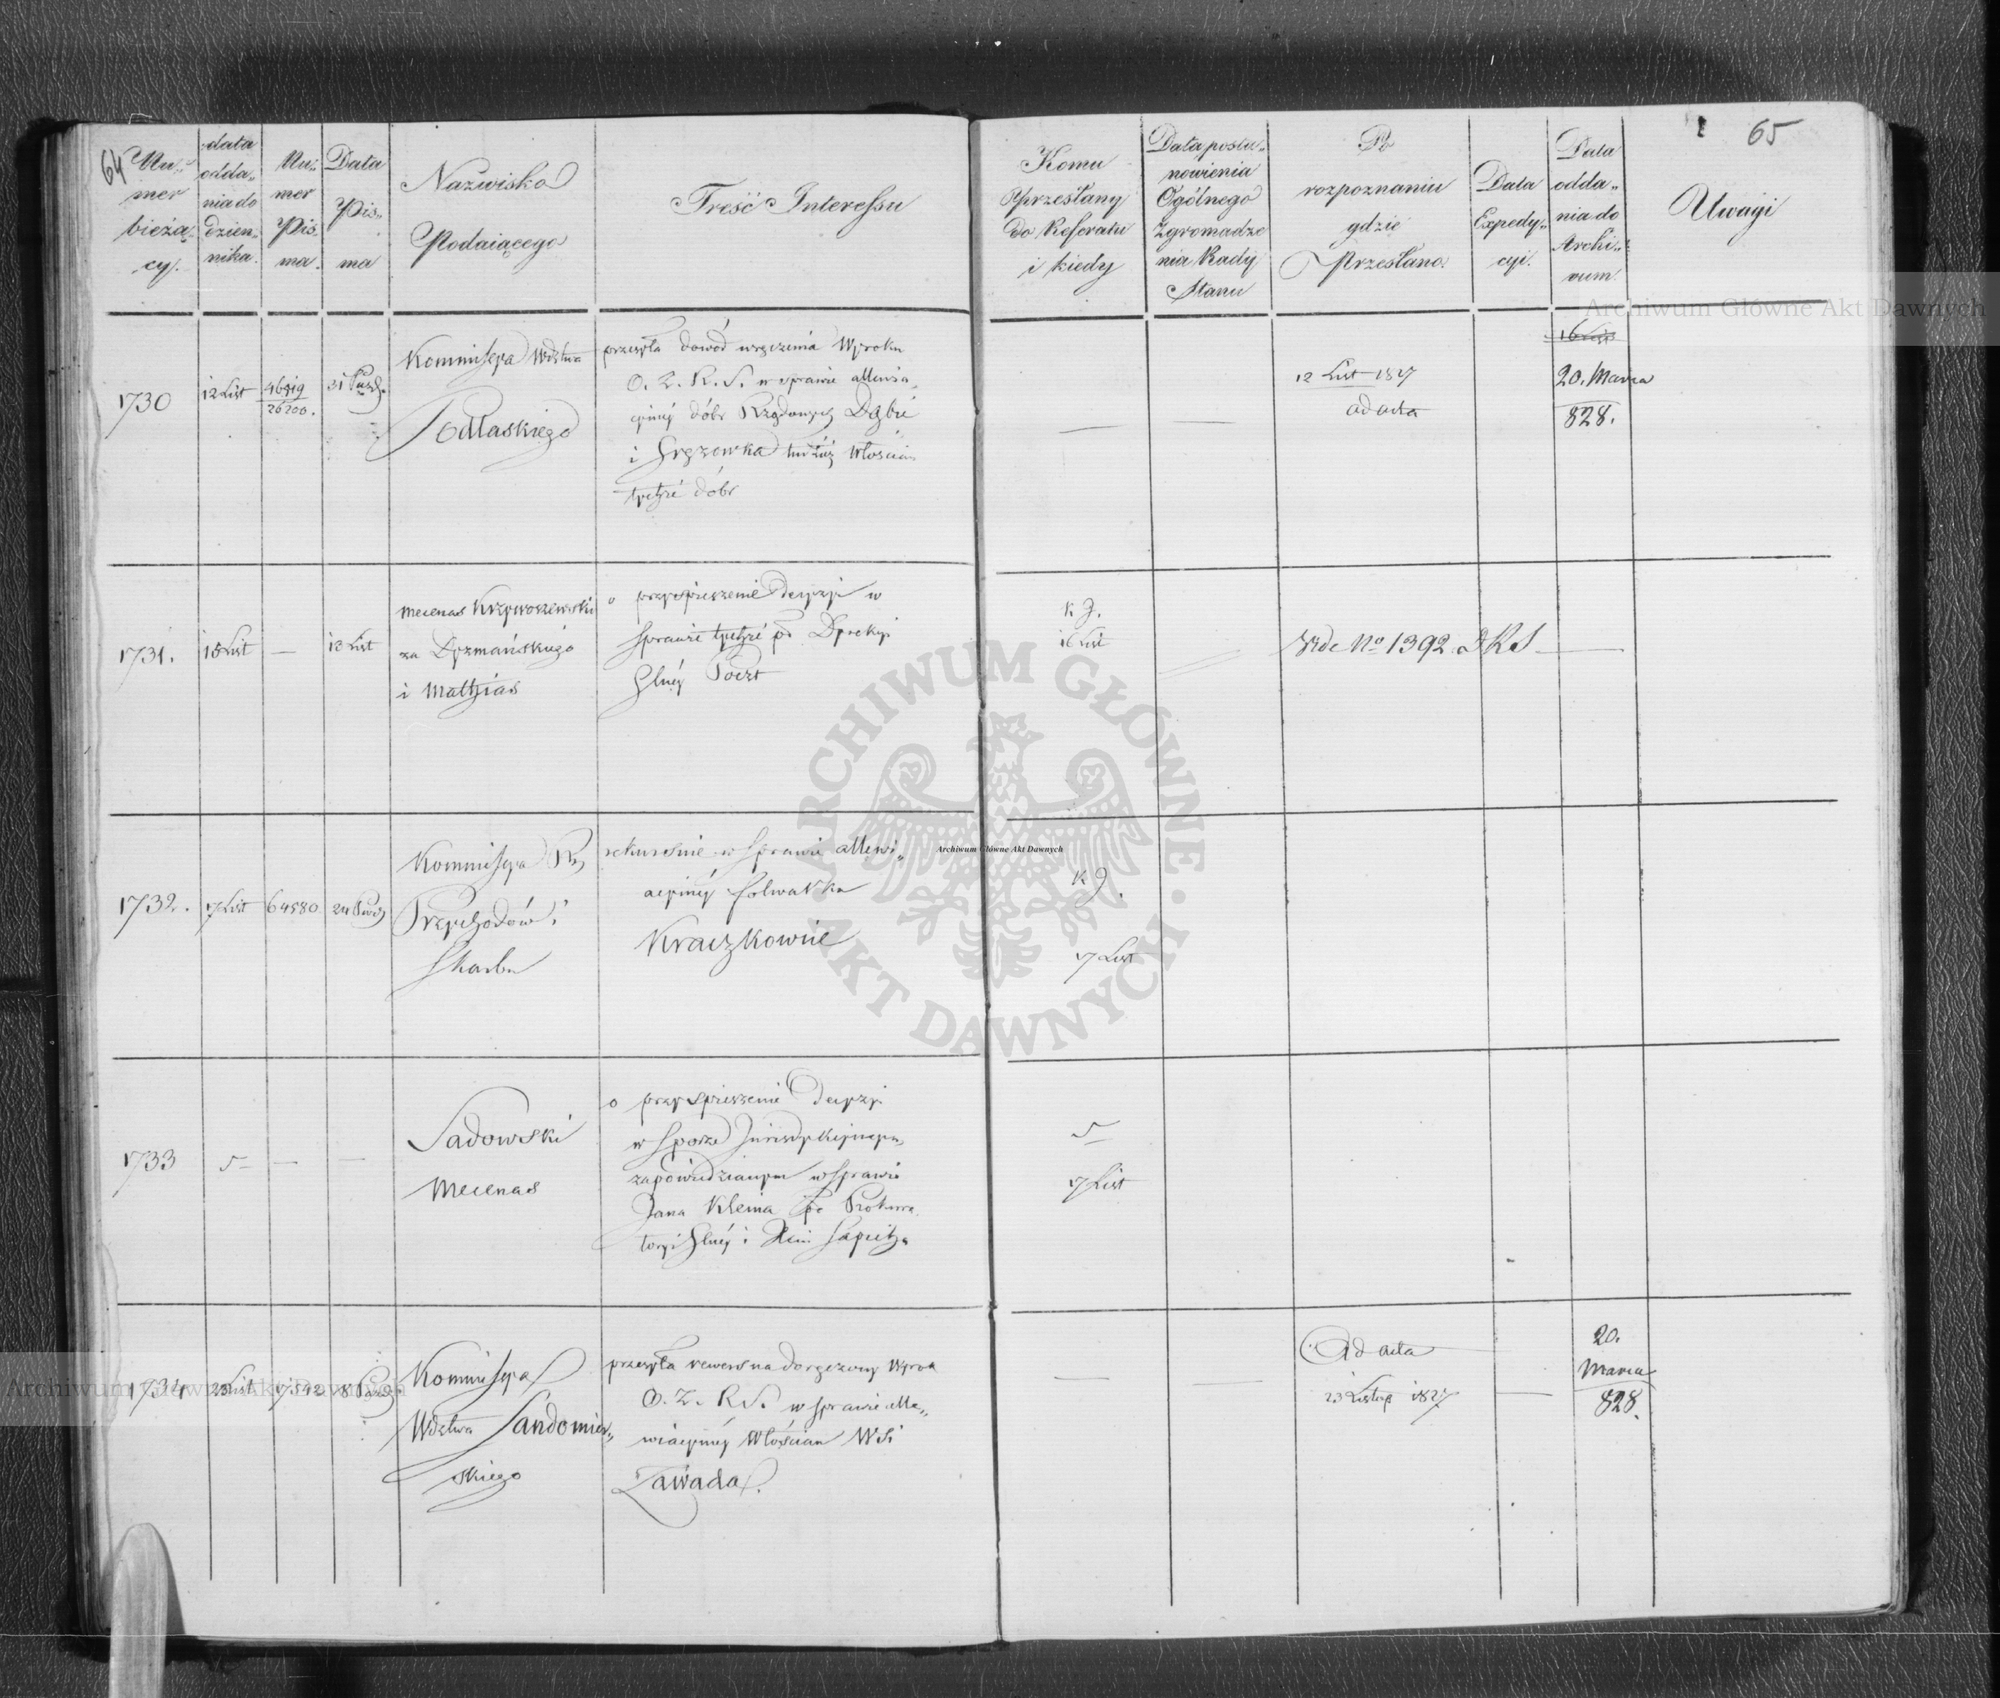 64
Nu-
mer
bieżą-
cy.
data
odda-
nia do
dzien-
nika.
Nu-
mer
Pis-
ma.
Data
Pis-
ma
Nazwisko
Podaiącego
Treść Interessu
Komu
przesłany
do Referatu
i kiedy
Data posta-
nowienia
Ogólnego
Zgromadze
nia Rady
Stanu
Po
rozpoznaniu
gdzie
Przesłano.
Data
Expedy-
cyi.
Data
odda-
nia do
Archi-
wum
Uwagi
65
1730
12 List
46819
26200.
31 Paźd.
Kommissya Wdztwa
Podlaskiego
przesyła dowód wręczenia Wyroku
O. Z. R. S. w sprawie
dóbr Rządowych
i Gręzowka tudzież Włościan
tychże dóbr
12 List 1827
ad acta
20. Marca
828.
1731.
13 List
—
13 List
Mecenas Krzywoszewski
za Dyzmańskiego
i Mathias
o przyspieszenie decyzyi w
sprawie tychże po Dyrekcyi
Głnéy Poczt
K J.
16 List
Vide No 1392 DKS
1732.
17 List
64580
24 Paźd
Kommissya Rz
Przychodów i
Skarbu
rekursnie w sprawie
folwarku
Kraczkowie
K J.
17 List
1733
—
—
Sadowski
Mecenas
o przyspieszenie Decyzyi
w sporze Jurisdykcyinym
zapowiedzianym w sprawie
Jana Kleina pc Prokura
toryi Głnéy i Xciu Sapieha
17 List
1734
23 List
17542
8 Paźd.
Kommissya
Wdztwa Sandomier-
skiego
przesyła rewers na doręczony Wyrok
O. Z. R. S. w sprawie
Włościan Wsi
Zawada.
Ad acta
23 Listop 1827
20.
Marca
828.
Archiwum Główne Akt Dawnych
Archiwum Główne Akt Dawnych
ARCHIWUM GŁÓWNE AKT DAWNYCH
Archiwum Główne Akt Dawnych